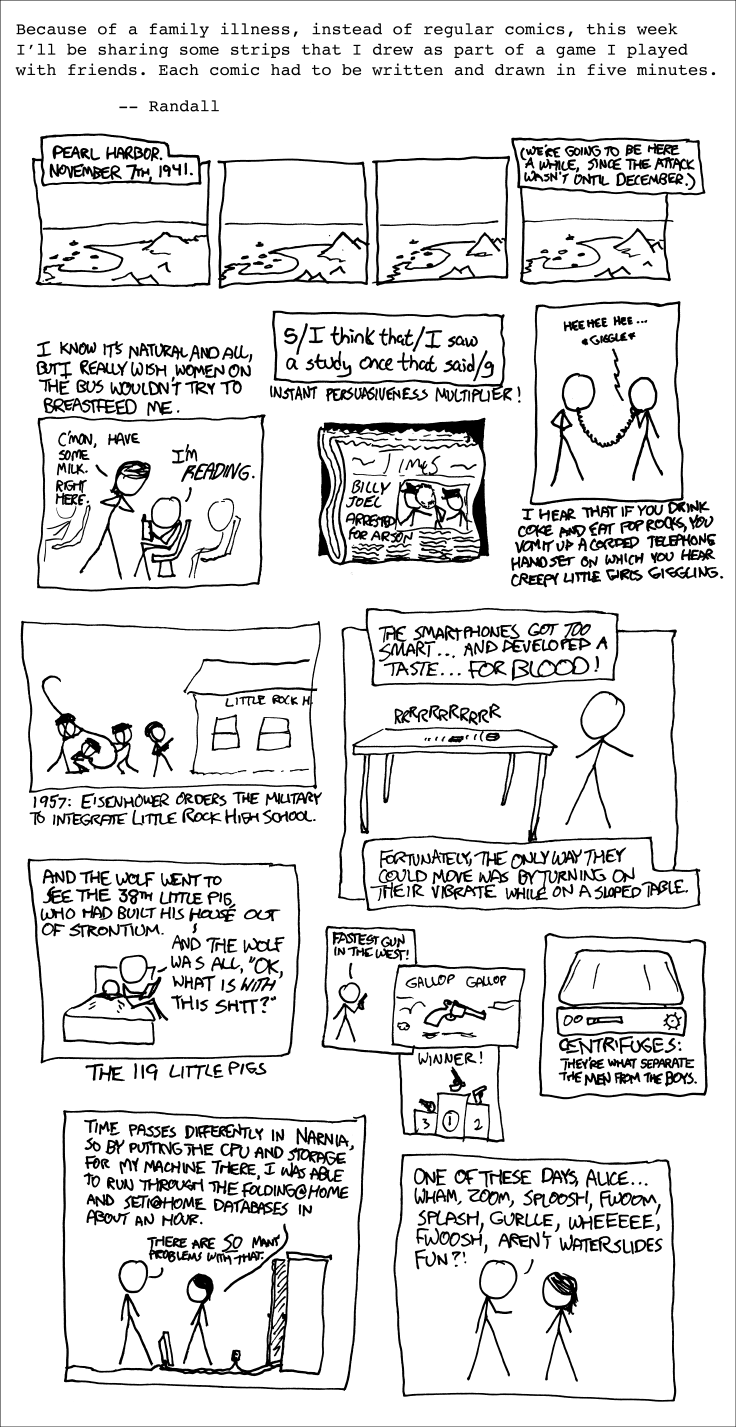 Because of a family illness, instead of regular comics, this week
I'll be sharing some strips that I drew as part of a game I played
with friends. Each comic had to be written and drawn in five minutes.
-- Randall
PEARL HARBOR.
NOVEMBER 7TH, 1941.
(WE'RE GOING TO BE HERE
A WHILE, SINCE THE ATTACK
WASN'T UNTIL DECEMBER.)
I KNOW IT'S NATURAL AND ALL,
BUT I REALLY WISH WOMEN ON
THE BUS WOULDN'T TRY TO
BREASTFEED ME.
C'MON, HAVE
SOME
MILK.
RIGHT
HERE.
I'M
READING.
S/I think that/I saw
a study once that said/g
INSTANT PERSUASIVENESS MULTIPLIER!
TIMES
BILLY
JOEL
ARRESTED
FOR ARSON
HEE HEE HEE...
*GIGGLE*
I HEAR THAT IF YOU DRINK
COKE AND EAT POP ROCKS, YOU
VOMIT UP A CORDED TELEPHONE
HANDSET ON WHICH YOU HEAR
CREEPY LITTLE GIRLS GIGGLING.
LITTLE ROCK H
1957: EISENHOWER ORDERS THE MILITARY
TO INTEGRATE LITTLE ROCK HIGH SCHOOL.
THE SMARTPHONES GOT TOO
SMART... AND DEVELOPED A
TASTE... FOR BLOOD!
RRRRRRRRRR
FORTUNATELY, THE ONLY WAY THEY
COULD MOVE WAS BY TURNING ON
THEIR VIBRATE WHILE ON A SLOPED TABLE.
AND THE WOLF WENT TO
SEE THE 38TH LITTLE PIG,
WHO HAD BUILT HIS HOUSE OUT
OF STRONTIUM.
AND THE WOLF
WAS ALL, "OK,
WHAT IS WITH
THIS SHIT?"
THE 119 LITTLE PIGS
FASTEST GUN
IN THE WEST!
GALLOP GALLOP
WINNER!
3 1 2
CENTRIFUGES:
THEY'RE WHAT SEPARATE
THE MEN FROM THE BOYS.
TIME PASSES DIFFERENTLY IN NARNIA,
SO BY PUTTING THE CPU AND STORAGE
FOR MY MACHINE THERE, I WAS ABLE
TO RUN THROUGH THE FOLDING@HOME
AND SETI@HOME DATABASES IN
ABOUT AN HOUR.
THERE ARE SO MANY
PROBLEMS WITH THAT.
ONE OF THESE DAYS, ALICE...
WHAM, ZOOM, SPLOOSH, FWOOM,
SPLASH, GURLLE, WHEEEEE,
FWOOSH, AREN'T WATERSLIDES
FUN?!